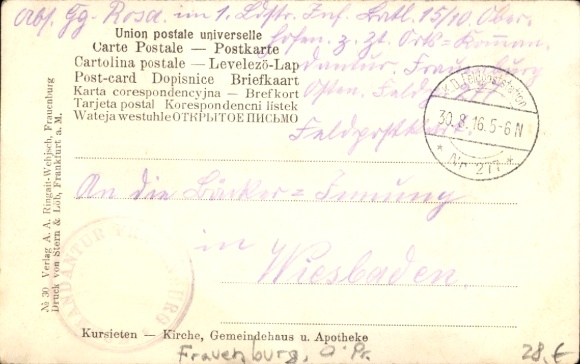 Abs. Gg. Rosa. im 1. Ldstr. Inf. Batl. 15/10 Ober-
hofen. z. Zt. Orts-Komman-
dantur. Frauenburg
Osten. Feldpost
Feldpostkarte
Union postale universelle
Carte Postale — Postkarte
Cartolina postale — Levelezö-Lap
Post-card Dopisnice Briefkaart
Karta corespondencyjna — Brefkort
Tarjeta postal Korespondencni listek
Wateja westuhle ОТКРЫТОЕ ПИСЬМО
K.D. Feldpoststation
30.8.16.5-6N
* Nr. 277 *
An die Bäcker=Innung
in
Wiesbaden.
№ 30 Verlag A. A. Ringait-Webjsch, Frauenburg
Druck von Stern & Löb, Frankfurt a. M.
Kursieten — Kirche, Gemeindehaus u. Apotheke
Frauenburg, O.Pr.
28,€